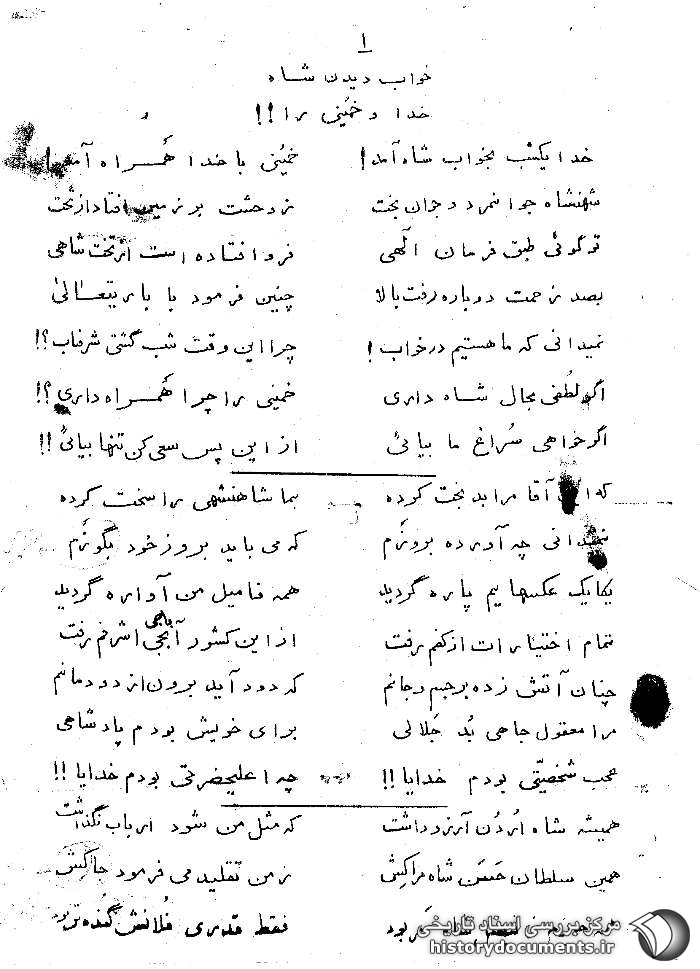 ۱
خواب دیدن شاه
خدا و خمینی را !!
خدا یکشب بخواب شاه آمد ! خمینی با خدا همراه آمد !
شهنشاه جوانمرد و جوان بخت ز وحشت بر زمین افتاد از تخت
تو گوئی طبق فرمان الهی فرو افتاده است از تخت شاهی
بصد زحمت دوباره رفت بالا چنین فرمود با باریتعالی
نمیدانی که ما هستیم در خواب ! چرا این وقت شب گشتی شرفیاب ؟!!
اگر لطفی بحال شاه داری خمینی را چرا همراه داری ؟!!
اگر خواهی سراغ ما بیائی از این پس سعی کن تنها بیائی !!
که این آقا مرا بد بخت کرده بما شاهنشهی را سخت کرده
نمیدانی چه آورده بروزم که می باید بروز خود بگوزم
یکایک عکسهایم پاره گردید همه فامیل من آواره گردید
تمام اختیارات از کفم رفت از این کشور آبجی باجی اشرفم رفت
چنان آتش زده بر جسم و جانم که دود آید برون از دودمانم
مرا معقول جاهی بُد جلالی برای خویش بودم پادشاهی
عجب شخصیتی بودم خدایا !! چه اعلیحضرتی بودم خدایا !!
همیشه شاه اردن آرزو داشت که مثل من شود ارباب نگذاشت
همین سلطان حسن شاه مراکش ز من تقلید می فرمود جاکش
فقط قدری فلانش گنده تر بود
مرکز بررسی اسناد تاریخی
historydocuments.ir